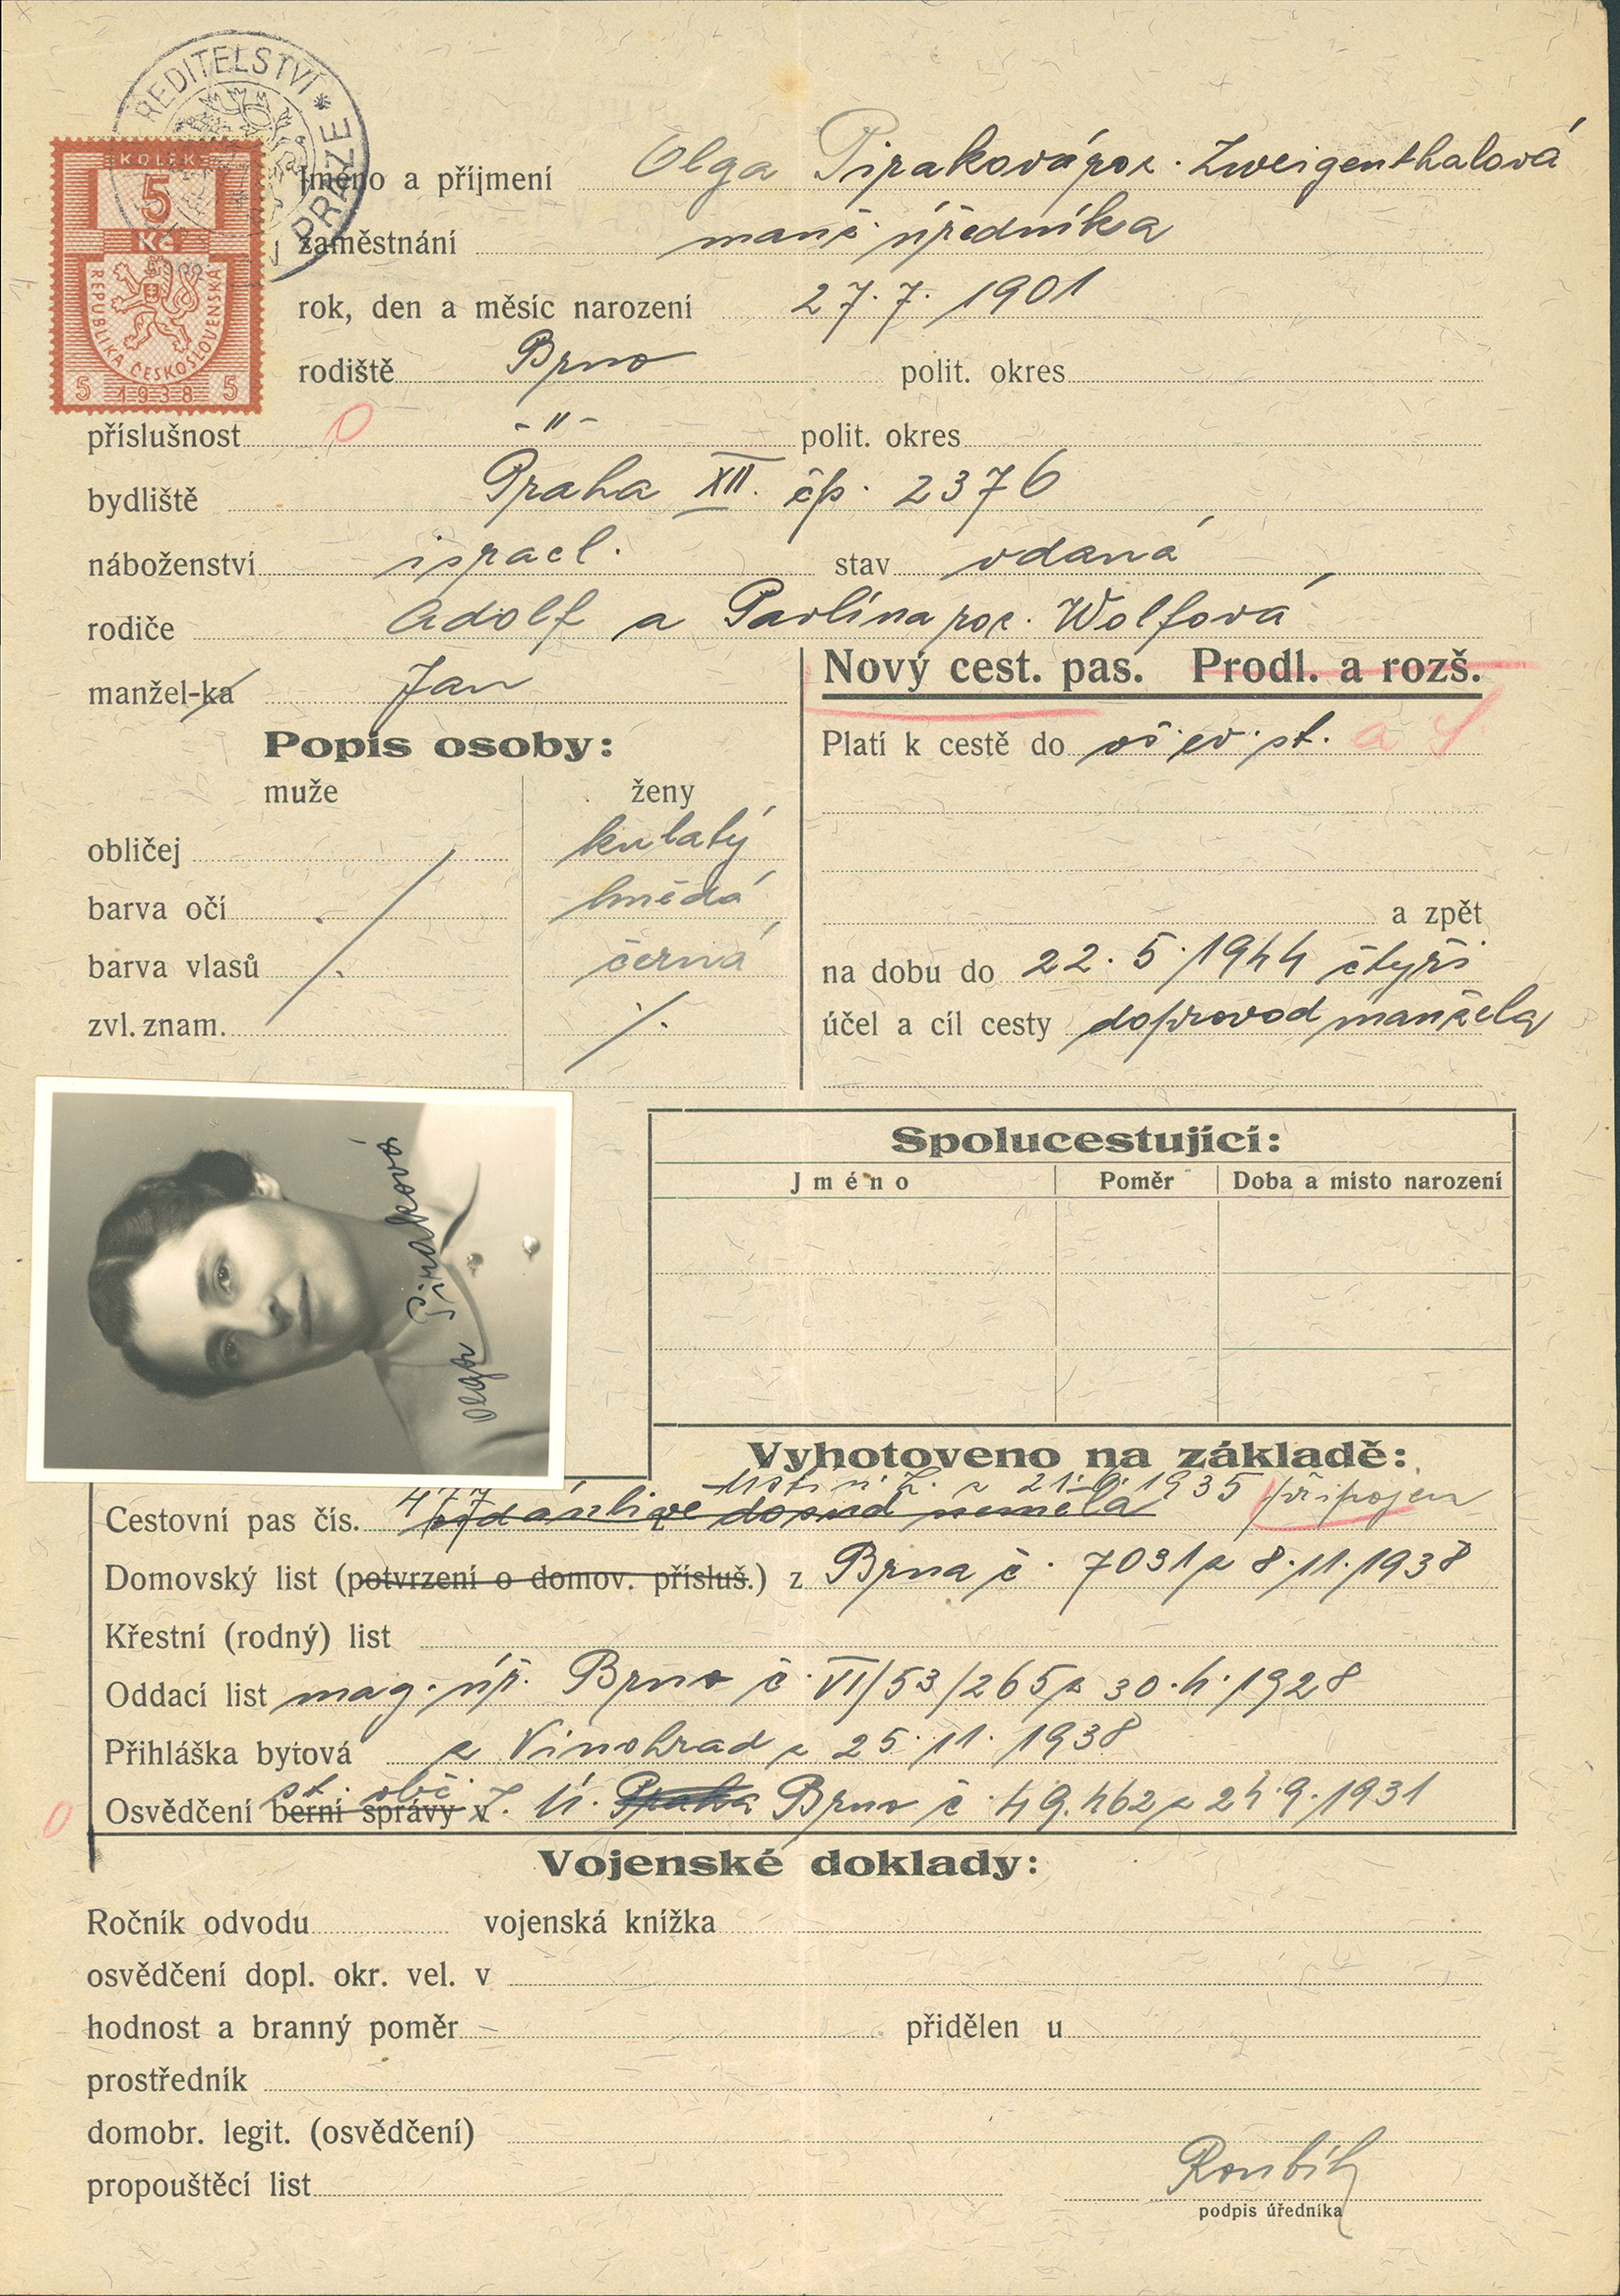 ŘEDITELSTVÍ * V PRAZE
KOLEK
5
Kč
REPUBLIKA ČESKOSLOVENSKÁ
5 1938 5
Jméno a příjmení Olga Piraková roz. Zweigenthalová
zaměstnání manž. úředníka
rok, den a měsíc narození 27. 7. 1901
rodiště Brno polit. okres
příslušnost 0 -"- polit. okres
bydliště Praha XII. čp. 2376
náboženství israel. stav vdaná
rodiče Adolf a Pavlína roz. Wolfová
manžel-ka Jan
Nový cest. pas. Prodl. a rozš.
Popis osoby:
muže ženy
obličej kulatý
barva očí hnědá
barva vlasů černá
zvl. znam. /.
Platí k cestě do vš. ev. st. a
a zpět
na dobu do 22. 5. 1944 čtyři
účel a cíl cesty doprovod manžela
Olga Piraková
Spolucestující:
Jméno Poměr Doba a místo narození
Vyhotoveno na základě:
21. 6. 1935 připojen
Cestovní pas čís. dosud neměla
Domovský list (potvrzení o domov. přísluš.) z Brna č. 7031 z 8. 11. 1938
Křestní (rodný) list
Oddací list mag. úř. Brno č. VI/53/265 z 30. 4. 1928
Přihláška bytová z Vinohrad z 25. 11. 1938
st. obč.
Osvědčení berní správy v Z. Ú. Praha Brno č. 49.462 z 24. 9. 1931
0
Vojenské doklady:
Ročník odvodu vojenská knížka
osvědčení dopl. okr. vel. v
hodnost a branný poměr přidělen u
prostředník
domobr. legit. (osvědčení)
propouštěcí list
podpis úředníka